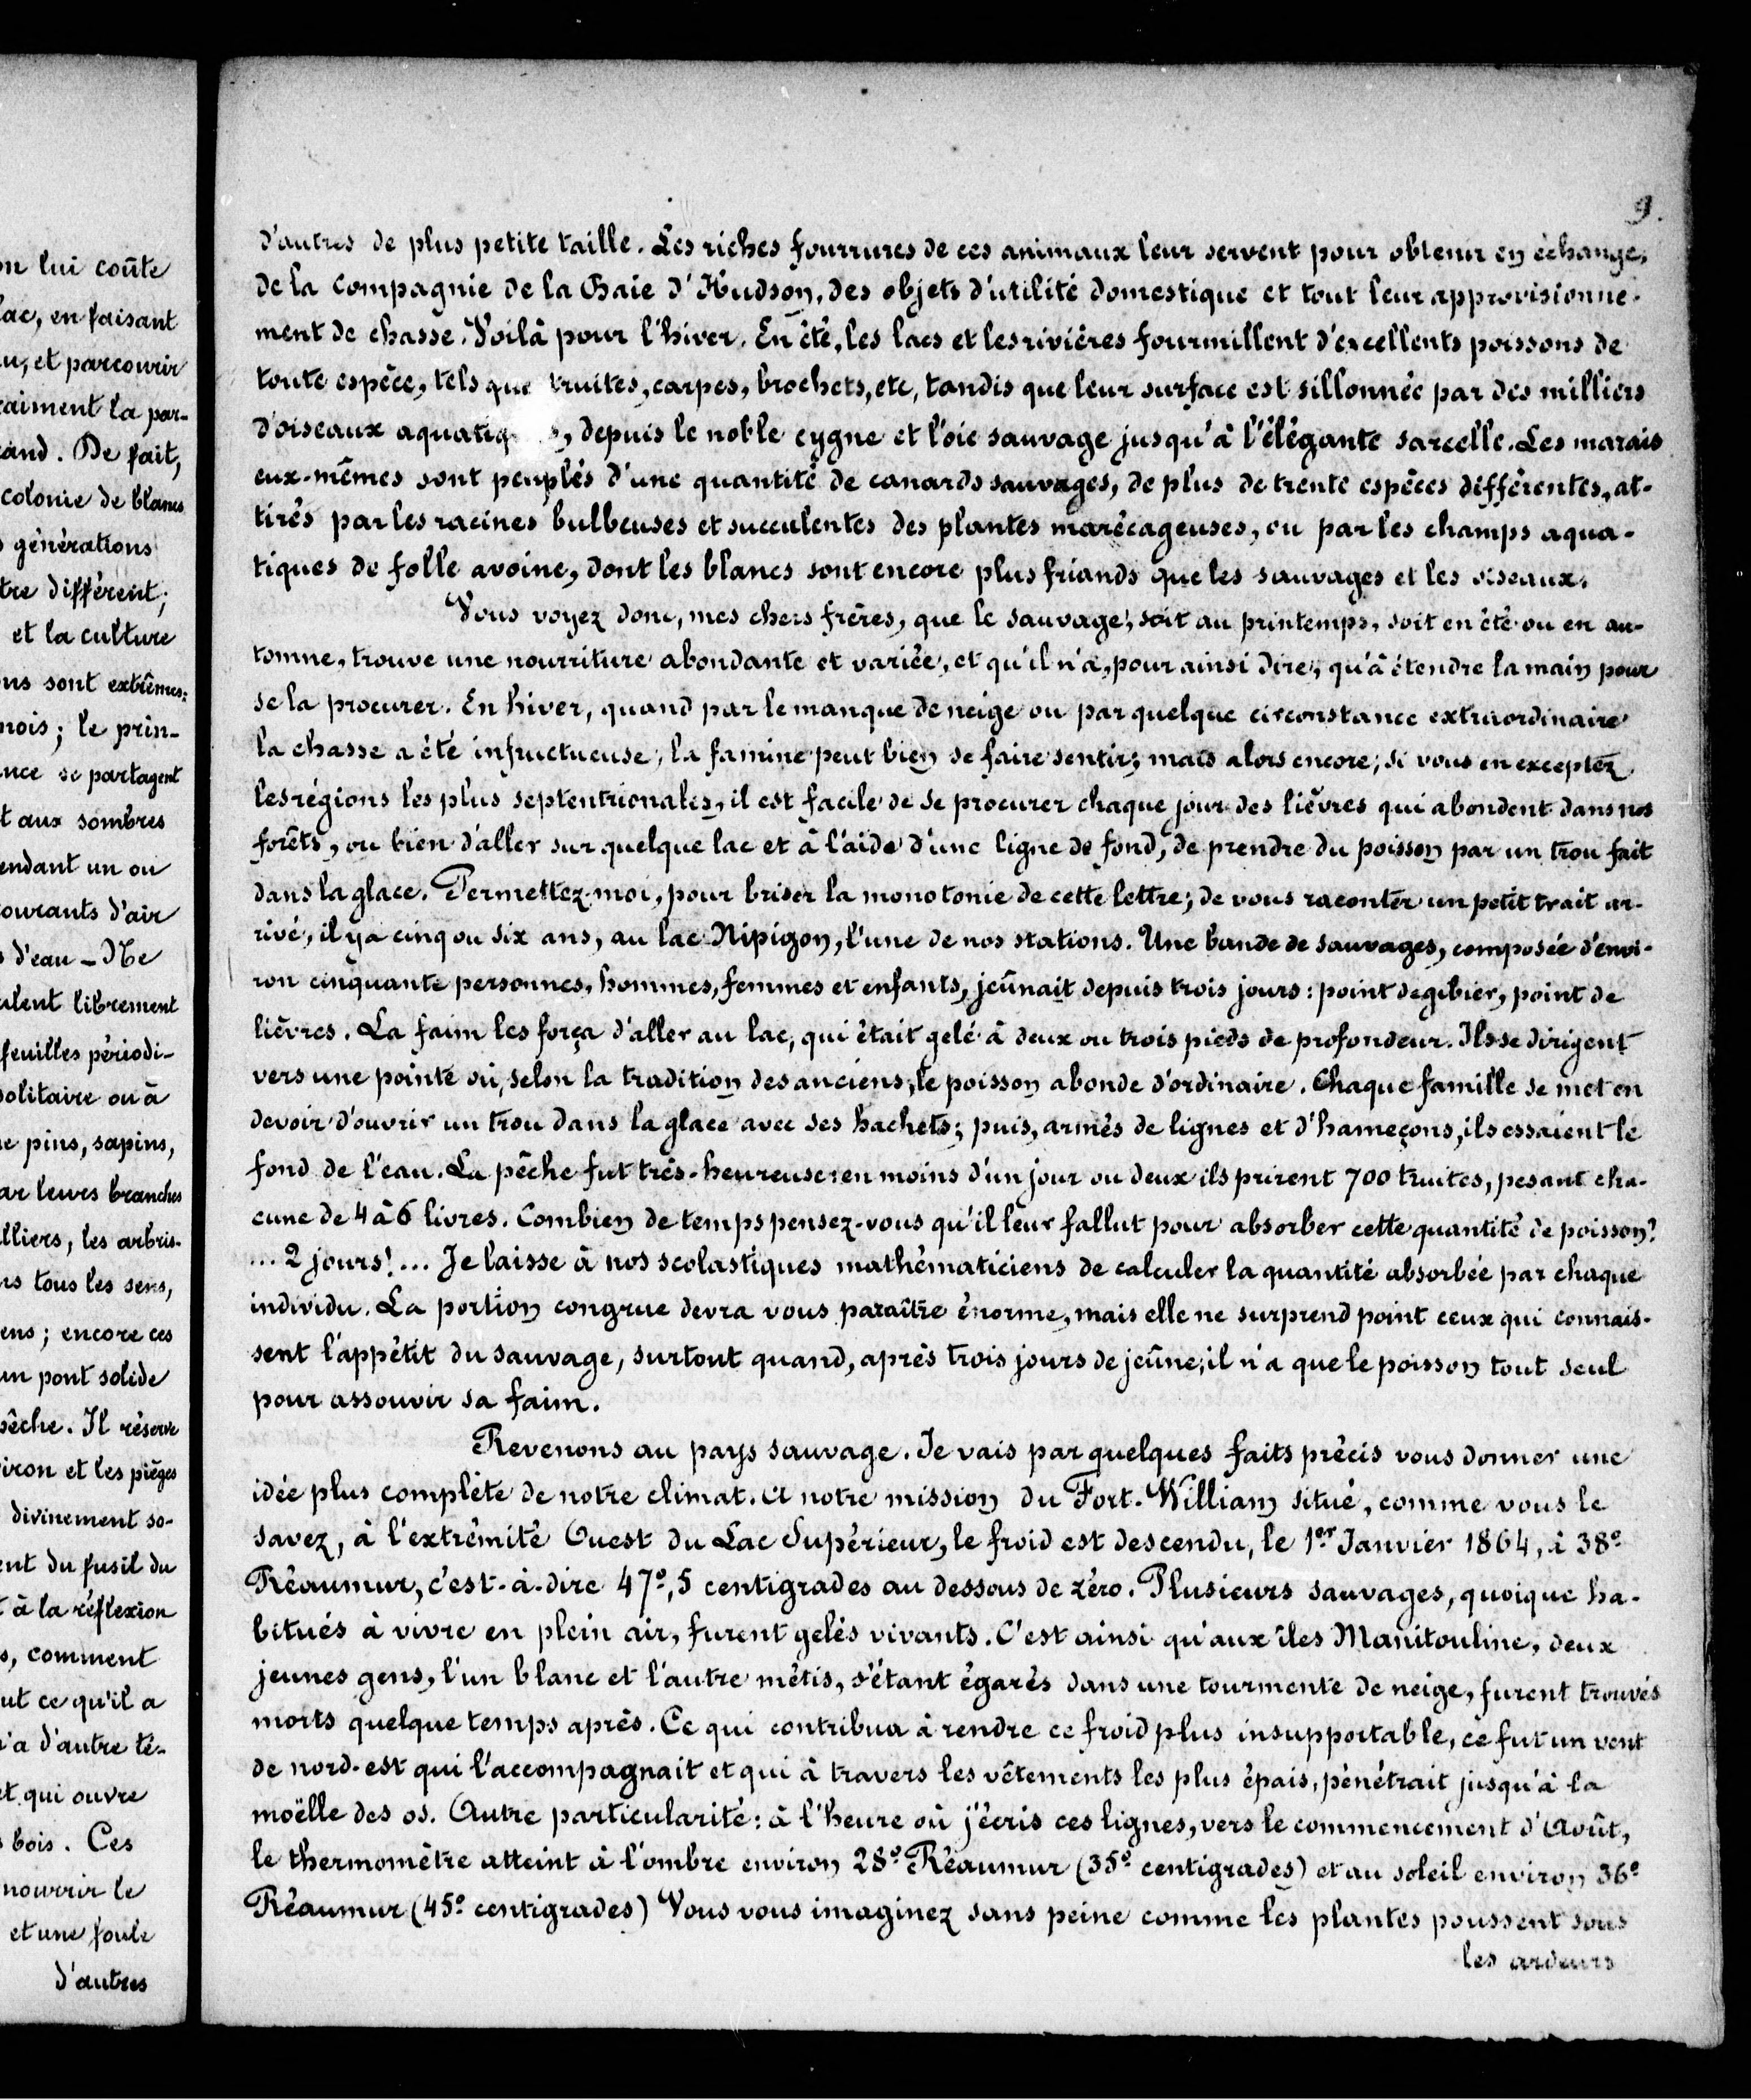 on lui coûte
lac, en faisant
au, et parcourir
raiment la par-
and. De fait,
colonie de blancs
générations
tre différent;
et la culture
ns sont extrêmes:
mois; le prin-
nce se partagent
t aux sombres
endant un ou
courants d'air
s d'eau - Ne
ulent librement
feuilles périodi-
solitaire ou à
e pins, sapins,
ar leurs branches
lliers, les arbris-
rs tous les sens,
ens; encore ces
un pont solide
pêche. Il réserve
iron et les pièges
divinement so-
ent du fusil du
t à la réflexion
s, comment
ut ce qu'il a
n'a d'autre té-
et qui ouvre
s bois. Ces
nourrir le
et une foule
d'autres
9.
d'autres de plus petite taille. Les riches fourrures de ces animaux leur servent pour obtenir en échange,
de la Compagnie de la Baie d'Hudson, des objets d'utilité domestique et tout leur approvisionne-
ment de chasse. Voilà pour l'hiver. En été, les lacs et les rivières fourmillent d'excellents poissons de
toute espèce, tels que truites, carpes, brochets, etc, tandis que leur surface est sillonnée par des milliers
d'oiseaux aquatiq s, depuis le noble cygne et l'oie sauvage jusqu'à l'élégante sarcelle. Les marais
eux-mêmes sont peuplés d'une quantité de canards sauvages, de plus de trente espèces différentes, at-
tirés par les racines bulbeuses et succulentes des plantes marécageuses, ou par les champs aqua-
tiques de folle avoine, dont les blancs sont encore plus friands que les sauvages et les oiseaux.
Vous voyez donc, mes chers frères, que le sauvage, soit au printemps, soit en été ou en au-
tomne, trouve une nourriture abondante et variée, et qu'il n'a, pour ainsi dire, qu'à étendre la main pour
se la procurer. En hiver, quand par le manque de neige ou par quelque circonstance extraordinaire
la chasse a été infructueuse, la famine peut bien se faire sentir; mais alors encore, si vous en exceptez
les régions les plus septentrionales, il est facile de se procurer chaque jour des lièvres qui abondent dans nos
forêts, ou bien d'aller sur quelque lac et à l'aide d'une ligne de fond, de prendre du poisson par un trou fait
dans la glace. Permettez-moi, pour briser la monotonie de cette lettre, de vous raconter un petit trait ar-
rivé, il y a cinq ou six ans, au lac Nipigon, l'une de nos stations. Une bande de sauvages, composée d'envi-
ron cinquante personnes, hommes, femmes et enfants, jeûnait depuis trois jours: point de gibier, point de
lièvres. La faim les força d'aller au lac, qui était gelé à deux ou trois pieds de profondeur. Ils se dirigent
vers une pointe où, selon la tradition des anciens, le poisson abonde d'ordinaire. Chaque famille se met en
devoir d'ouvrir un trou dans la glace avec ses hachets; puis, armés de lignes et d'hameçons, ils essaient le
fond de l'eau. La pêche fut très-heureuse: en moins d'un jour ou deux ils prirent 700 truites, pesant cha-
cune de 4 à 6 livres. Combien de temps pensez-vous qu'il leur fallut pour absorber cette quantité de poisson?
... 2 jours!... Je laisse à nos scolastiques mathématiciens de calculer la quantité absorbée par chaque
individu. La portion congrue devra vous paraître énorme, mais elle ne surprend point ceux qui connais-
sent l'appétit du sauvage, surtout quand, après trois jours de jeûne, il n'a que le poisson tout seul
pour assouvir sa faim.
Revenons au pays sauvage. Je vais par quelques faits précis vous donner une
idée plus complète de notre climat. A notre mission du Fort-William situé, comme vous le
savez, à l'extrémité Ouest du Lac Supérieur, le froid est descendu, le 1er Janvier 1864, à 38°
Réaumur, c'est-à-dire 47°,5 centigrades au dessous de zéro. Plusieurs sauvages, quoique ha-
bitués à vivre en plein air, furent gelés vivants. C'est ainsi qu'aux îles Manitouline, deux
jeunes gens, l'un blanc et l'autre métis, s'étant égarés dans une tourmente de neige, furent trouvés
morts quelque temps après. Ce qui contribua à rendre ce froid plus insupportable, ce fut un vent
de nord-est qui l'accompagnait et qui à travers les vêtements les plus épais, pénétrait jusqu'à la
moëlle des os. Autre particularité: à l'heure où j'écris ces lignes, vers le commencement d'Août,
le thermomètre atteint à l'ombre environ 28° Réaumur (35° centigrades) et au soleil environ 36°
Réaumur (45° centigrades) Vous vous imaginez sans peine comme les plantes poussent sous
les ardeurs